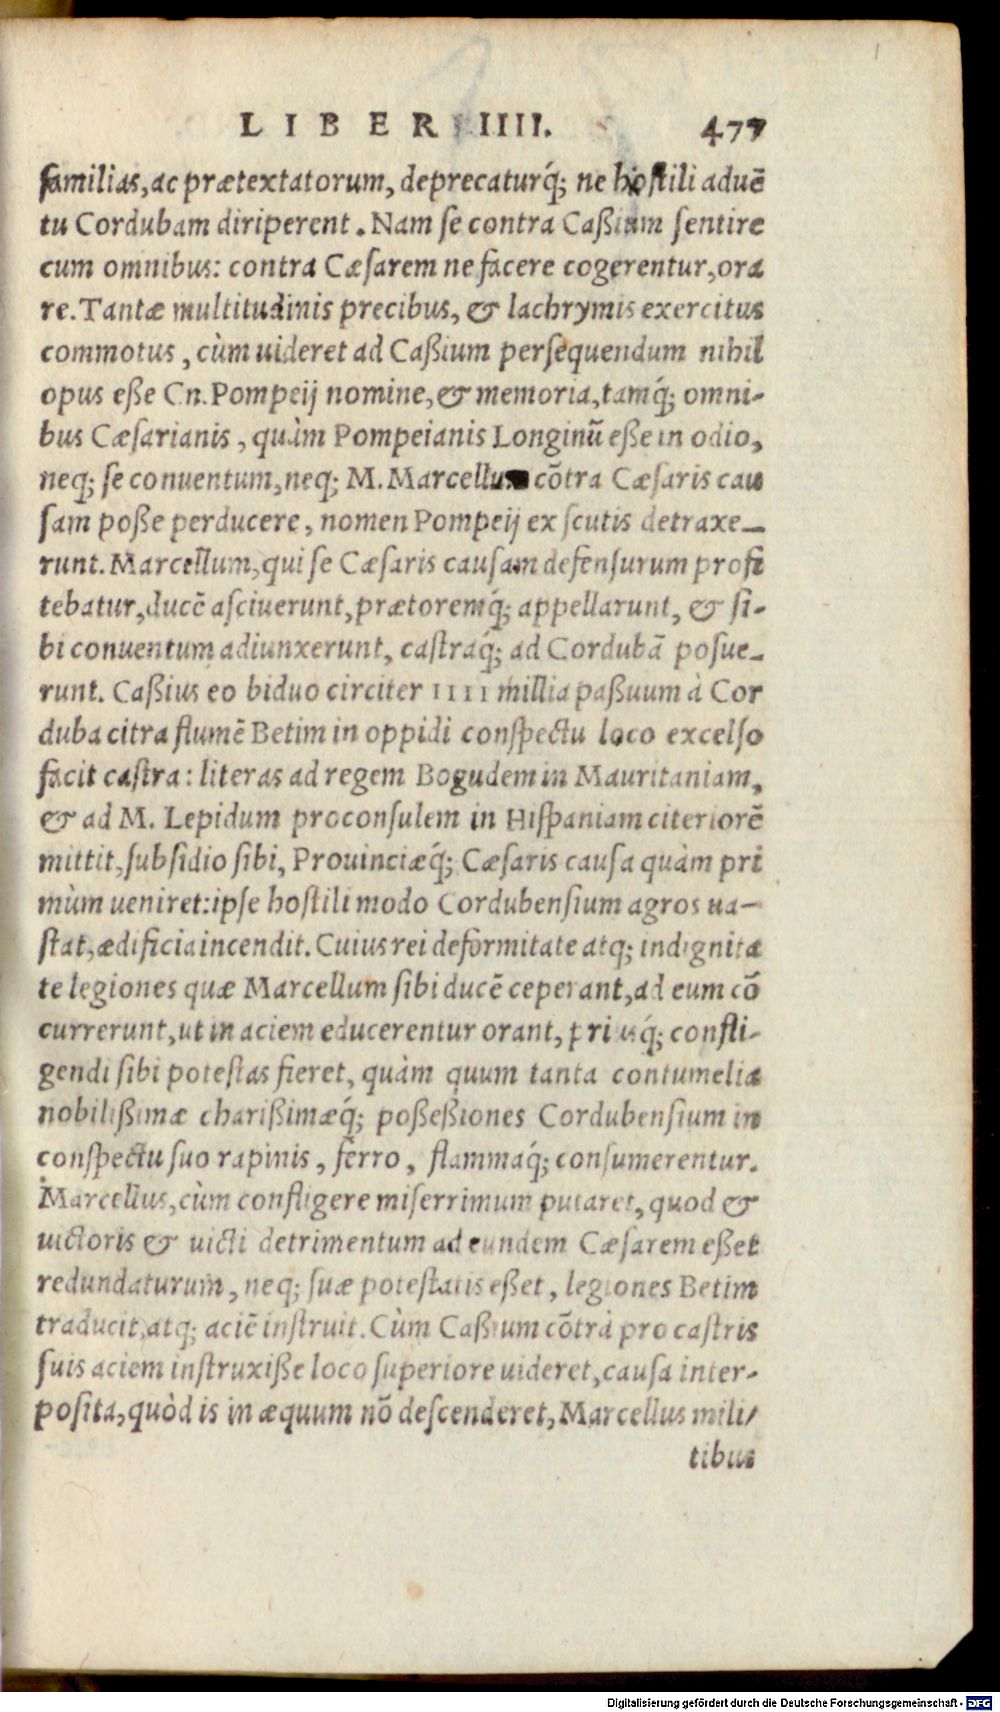 LIBER IIII. 477
familias, ac prætextatorum, deprecaturq́; ne hostili aduẽ
tu Cordubam diriperent. Nam se contra Caßium sentire
cum omnibus: contra Cæsarem ne facere cogerentur, ora
re. Tantæ multitudinis precibus, & lachrymis exercitus
commotus, cùm uideret ad Caßium persequendum nihil
opus eße Cn. Pompeij nomine, & memoria, tamq́; omni-
bus Cæsarianis, quàm Pompeianis Longinũ eße in odio,
neq; se conuentum, neq; M. Marcellum cõtra Cæsaris cau
sam poße perducere, nomen Pompeij ex scutis detraxe-
runt. Marcellum, qui se Cæsaris causam defensurum profi
tebatur, ducẽ asciuerunt, prætoremq́; appellarunt, & si-
bi conuentum adiunxerunt, castraq́; ad Cordubã posue-
runt. Caßius eo biduo circiter IIII millia paßuum à Cor
duba citra flumẽ Betim in oppidi conspectu loco excelso
facit castra: literas ad regem Bogudem in Mauritaniam,
& ad M. Lepidum proconsulem in Hispaniam citeriorẽ
mittit, subsidio sibi, Prouinciæq́; Cæsaris causa quàm pri
mùm ueniret: ipse hostili modo Cordubensium agros ua-
stat, ædificia incendit. Cuius rei deformitate atq; indignita
te legiones quæ Marcellum sibi ducẽ ceperant, ad eum cõ
currerunt, ut in aciem educerentur orant, priusq́; confli-
gendi sibi potestas fieret, quàm quum tanta contumelia
nobilißimæ charißimæq́; poßeßiones Cordubensium in
conspectu suo rapinis, ferro, flammaq́; consumerentur.
Marcellus, cùm confligere miserrimum putaret, quod &
uictoris & uicti detrimentum ad eundem Cæsarem eßet
redundaturum, neq; suæ potestatis eßet, legiones Betim
traducit, atq; aciẽ instruit. Cùm Caßium cõtrà pro castris
suis aciem instruxiße loco superiore uideret, causa inter-
posita, quòd is in æquum nõ descenderet, Marcellus mili-
tibus
Digitalisierung gefördert durch die Deutsche Forschungsgemeinschaft - DFG